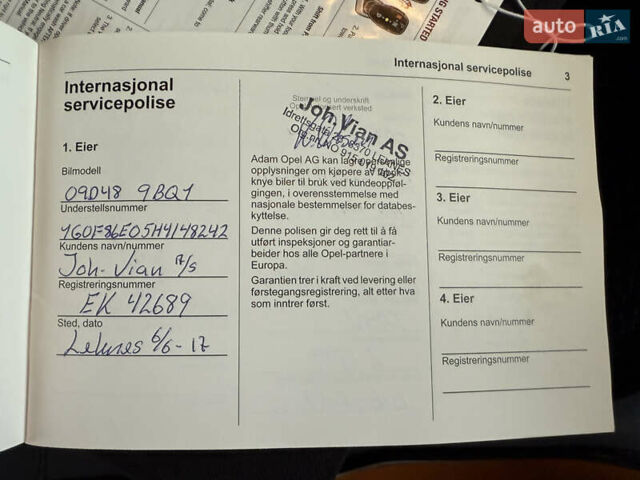 auto RIA .com
Internasjonal servicepolise 3
Internasjonal
servicepolise
1. Eier
Bilmodell
09D48 9BQ1
Understellsnummer
1G0F86E05H4148242
Kundens navn/nummer
Joh. Vian A/S
Registreringsnummer
EK 42689
Sted, dato
Leknes 6/6-17
Stempel og underskrift
Joh. Vian AS
Adam Opel AG kan lagre personlige
opplysninger om kjøpere av
knye biler til bruk ved kundeoppføl-
gingen, i overensstemmelse med
nasjonale bestemmelser for databes-
kyttelse.
Denne polisen gir deg rett til å få
utført inspeksjoner og garantiar-
beider hos alle Opel-partnere i
Europa.
Garantien trer i kraft ved levering eller
førstegangsregistrering, alt etter hva
som inntrer først.
2. Eier
Kundens navn/nummer
Registreringsnummer
3. Eier
Kundens navn/nummer
Registreringsnummer
4. Eier
Kundens navn/nummer
Registreringsnummer